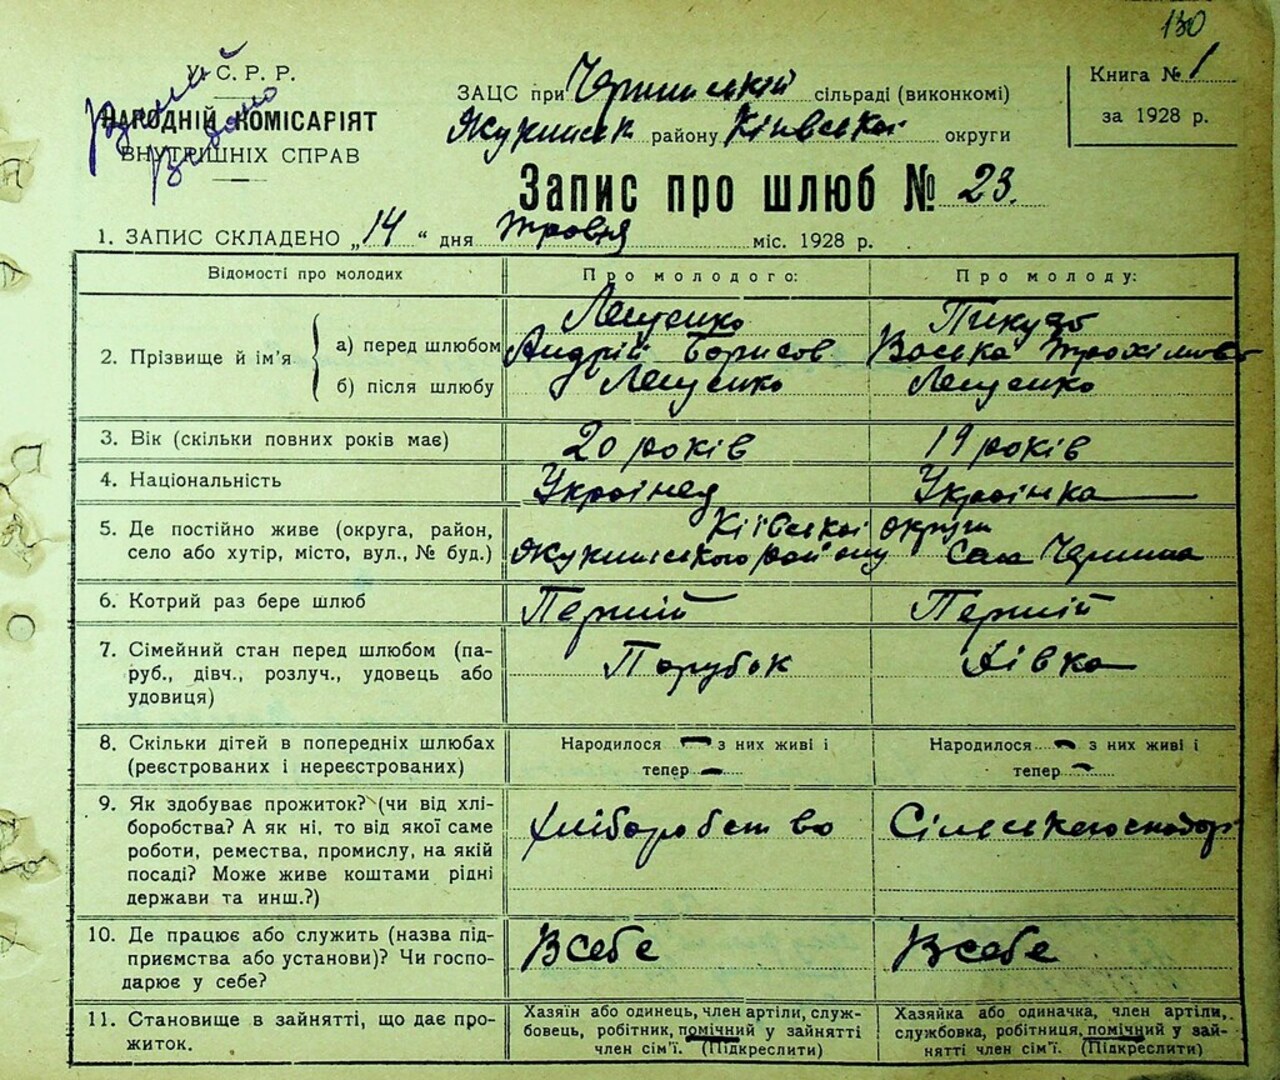 130
У. С. Р. Р.
НАРОДНІЙ КОМІСАРІЯТ
ВНУТРІШНІХ СПРАВ
ЗАЦС при сільраді (виконкомі)
району Київської округи
Книга № 1
за 1928 р.
Запис про шлюб № 23.
1. ЗАПИС СКЛАДЕНО „14“ дня травня міс. 1928 р.
Відомості про молодих
Про молодого:
Про молоду:
2. Прізвище й ім'я
а) перед шлюбом
б) після шлюбу
Лещенко
Андрій Борисов
Лещенко
Васька
Лещенко
3. Вік (скільки повних років має)
20 років
19 років
4. Національність
Українец
Українка
5. Де постійно живе (округа, район,
село або хутір, місто, вул., № буд.)
Київської округи
району
6. Котрий раз бере шлюб
Перший
Перший
7. Сімейний стан перед шлюбом (па-
руб., дівч., розлуч., удовець або
удовиця)
Парубок
Дівка
8. Скільки дітей в попередніх шлюбах
(реєстрованих і нереєстрованих)
Народилося — з них живі і
тепер —
Народилося — з них живі і
тепер —
9. Як здобуває прожиток? (чи від хлі-
боробства? А як ні, то від якої саме
роботи, ремества, промислу, на якій
посаді? Може живе коштами рідні
держави та инш.?)
Хліборобство
10. Де працює або служить (назва під-
приємства або установи)? Чи госпо-
дарює у себе?
В себе
В себе
11. Становище в зайнятті, що дає про-
житок.
Хазяїн або одинець, член артілі, служ-
бовець, робітник, помічний у зайнятті
член сім'ї. (Підкреслити)
Хазяйка або одиначка, член артіли,
службовка, робітниця, помічний у зай-
нятті член сім'ї. (Підкреслити)